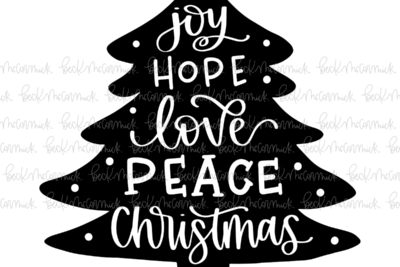 joy
HOPE
love
PEACE
Christmas